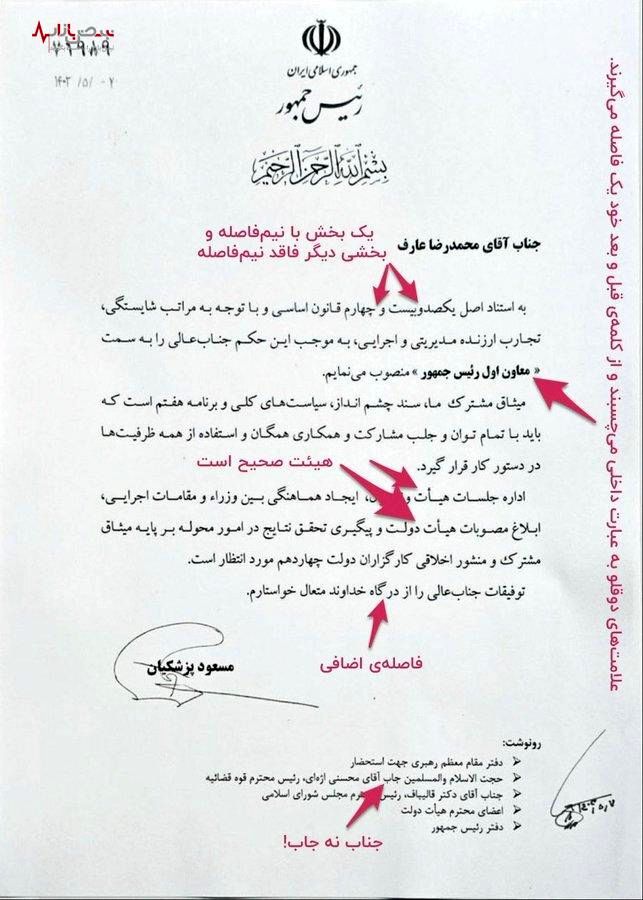 نبض بازار
۷۱۹۸۹
۱۴۰۳/۵/۰۷
جمهوری اسلامی ایران
رئیس جمهور
بسم الله الرحمن الرحیم
جناب آقای محمدرضا عارف
یک بخش با نیم‌فاصله و
بخشی دیگر فاقد نیم‌فاصله
به استناد اصل یکصدوبیست و چهارم قانون اساسی و با توجه به مراتب شایستگی،
تجارب ارزنده مدیریتی و اجرایی، به موجب این حکم جناب‌عالی را به سمت
« معاون اول رئیس جمهور » منصوب می‌نمایم.
میثاق مشترک ما، سند چشم انداز، سیاست‌های کلی و برنامه هفتم است که
باید با تمام توان و جلب مشارکت و همکاری همگان و استفاده از همه ظرفیت‌ها
در دستور کار قرار گیرد.
هیئت صحیح است
اداره جلسات هیأت ایجاد هماهنگی بین وزراء و مقامات اجرایی،
ابلاغ مصوبات هیأت دولت و پیگیری تحقق نتایج در امور محوله بر پایه میثاق
مشترک و منشور اخلاقی کارگزاران دولت چهاردهم مورد انتظار است.
توفیقات جناب‌عالی را از در گاه خداوند متعال خواستارم.
فاصله‌ی اضافی
علامت‌های دوقلو به عبارت داخلی می‌چسبند و از کلمه‌ی قبل و بعد خود یک فاصله می‌گیرند.
مسعود پزشکیان
رونوشت:
دفتر مقام معظم رهبری جهت استحضار
حجت الاسلام والمسلمین جاب آقای محسنی اژه‌ای، رئیس محترم قوه قضائیه
جناب آقای دکتر قالیباف، رئیس محترم مجلس شورای اسلامی
اعضای محترم هیأت دولت
دفتر رئیس جمهور
جناب نه جاب!